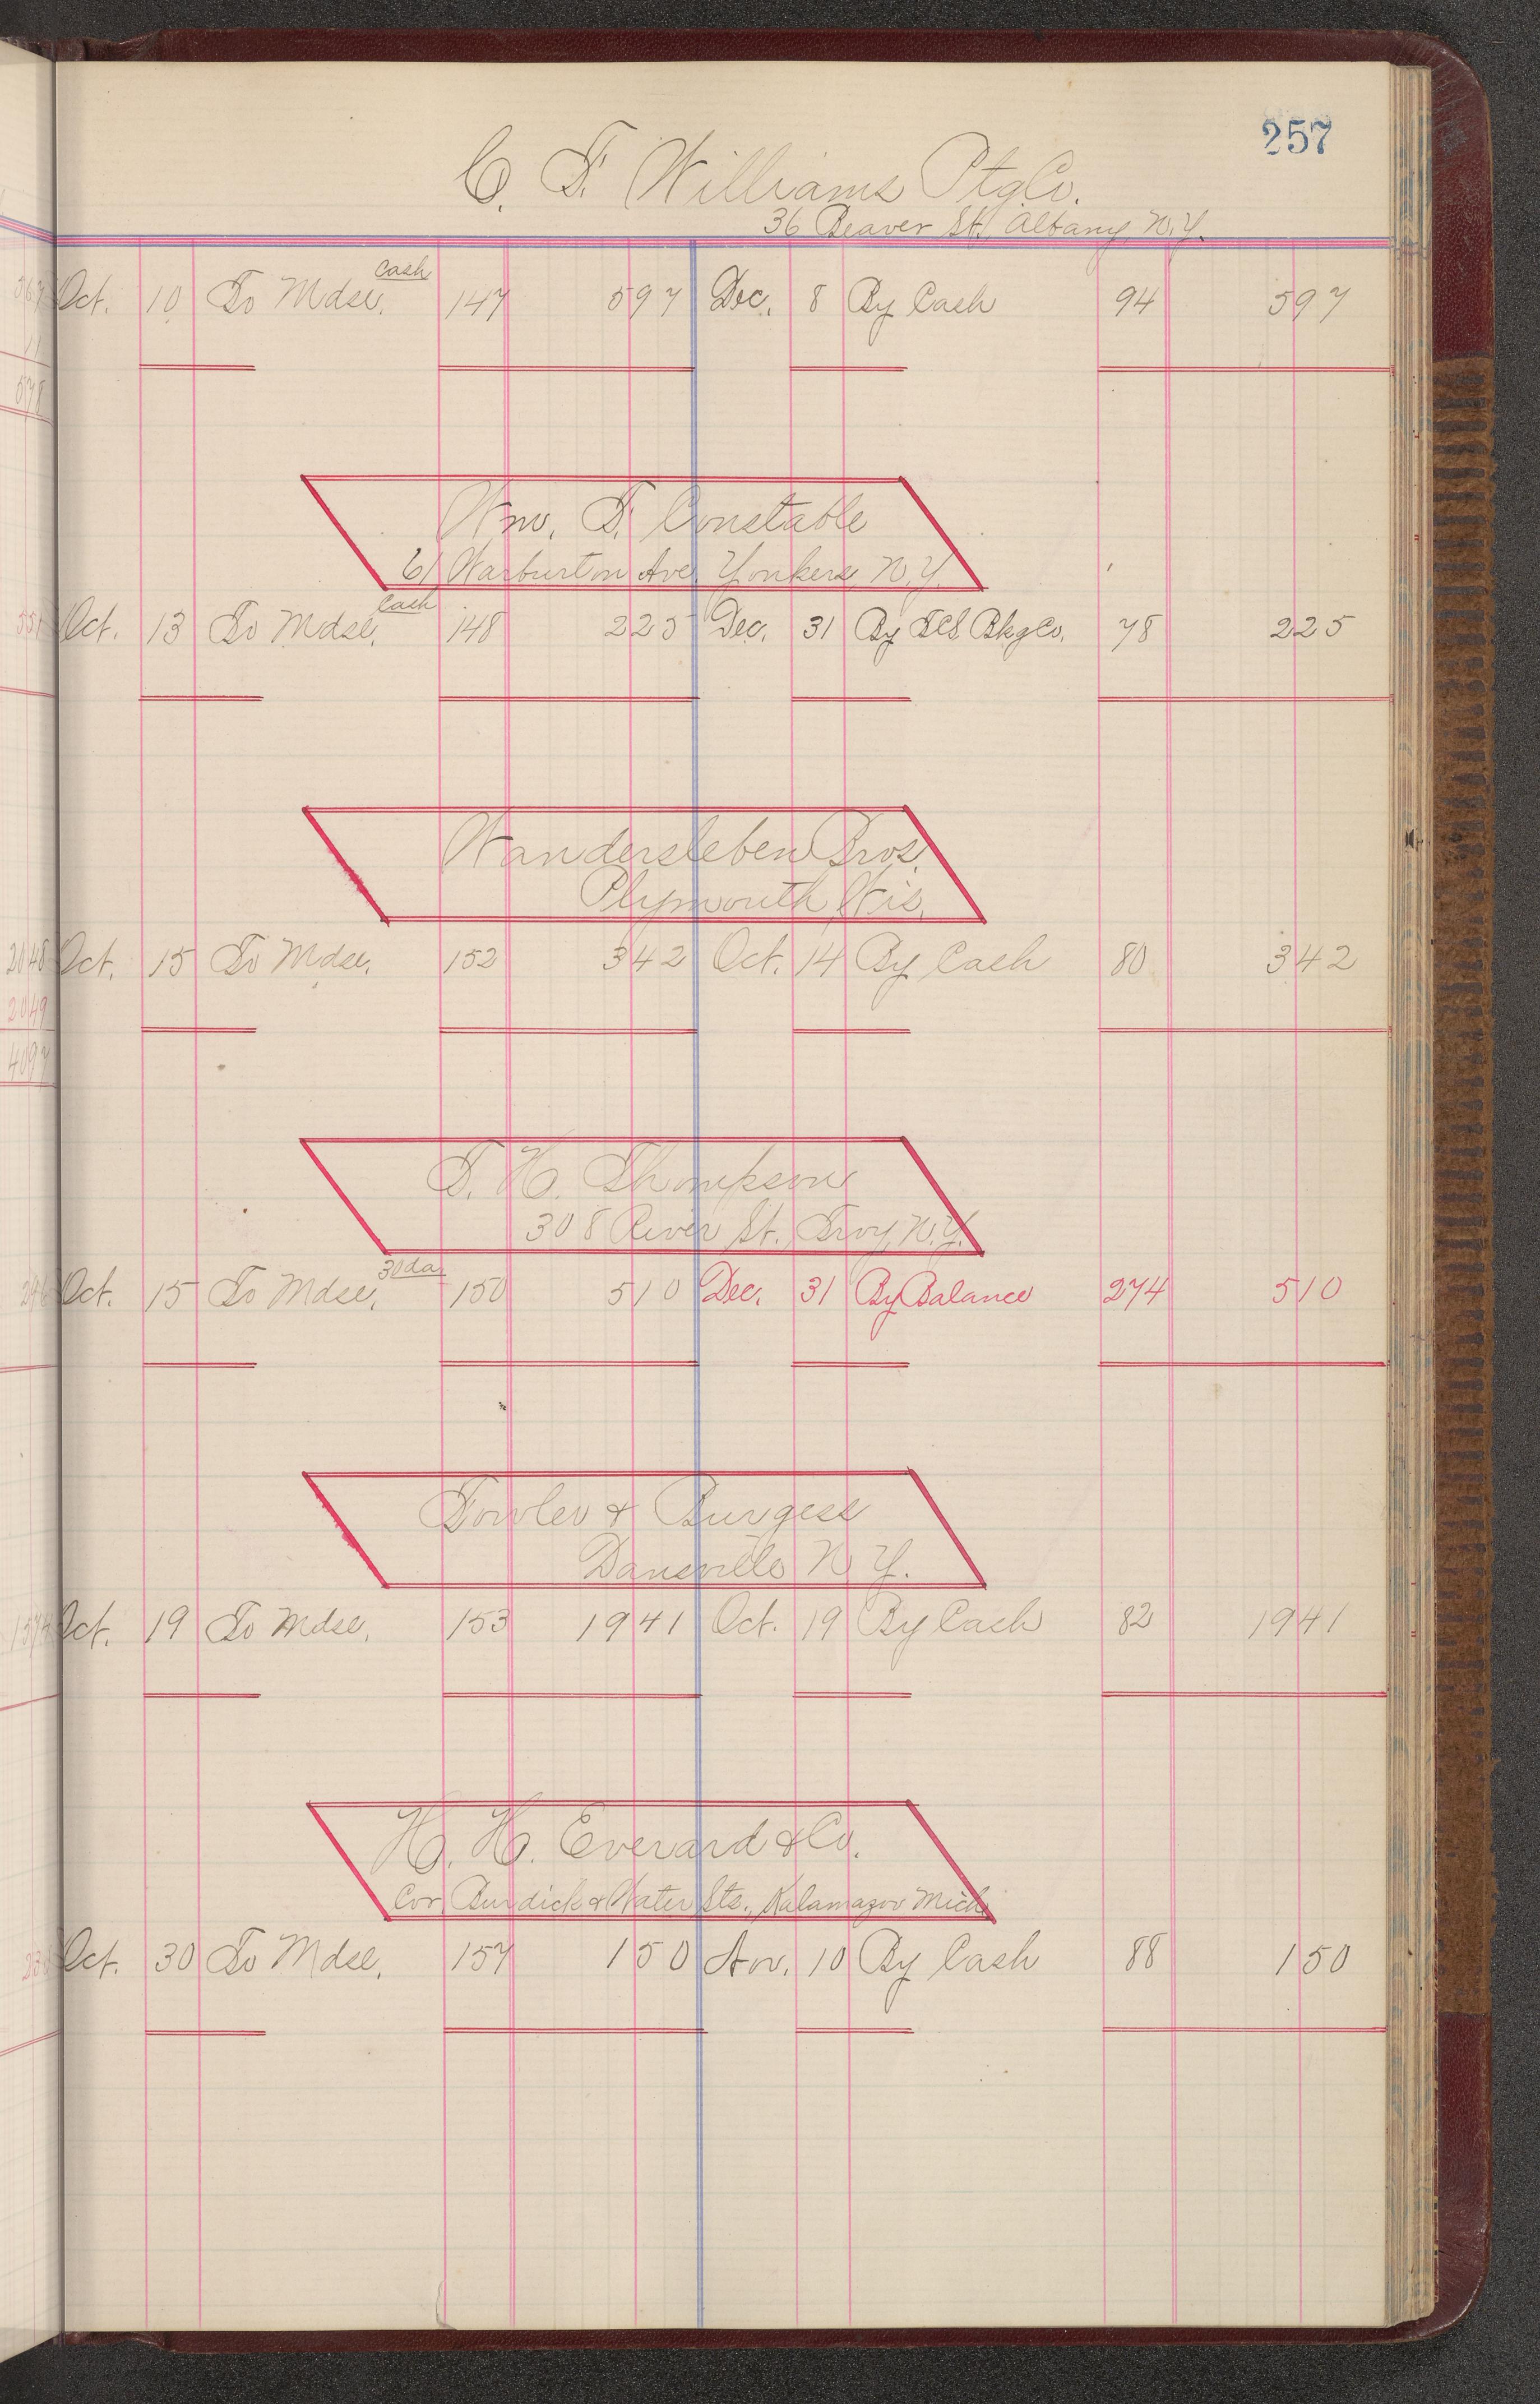 257
C. F. Williams Ptg Co.
36 Beaver St. Albany, N.Y.
Cash
Oct. 10 To Mdse. 147 597 Dec. 8 By Cash 94 597
Wm. F. Constable
61 Warburton Ave. Yonkers N.Y.
Cash
Oct. 13 To Mdse. 148 225 Dec. 31 By Bkg Co. 78 225
Wandersleben Bros.
Plymouth, Wis.
2048 Oct. 15 To Mdse. 152 342 Oct. 14 By Cash 80 342
2049
4097
T. H. Thompson
308 River St. Troy, N.Y.
30 da
Oct. 15 To Mdse. 150 510 Dec. 31 By Balance 274 510
Fowler & Burgess
Dansville N Y.
Oct. 19 To Mdse. 153 1941 Oct. 19 By Cash 82 1941
H. H. Everard & Co.
Cor. Burdick & Water Sts., Kalamazoo Mich
Oct. 30 To Mdse. 157 150 Nov. 10 By Cash 88 150